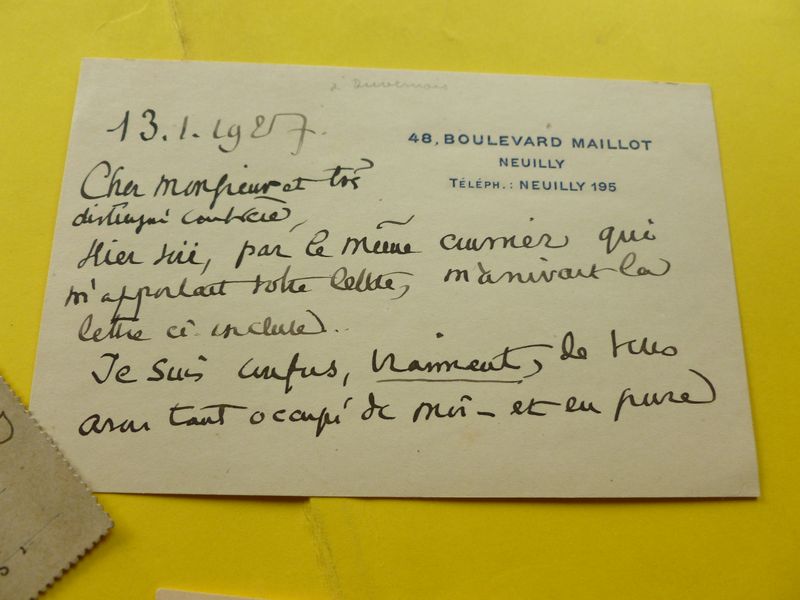 à Duvernois
13.1.1927.
48, BOULEVARD MAILLOT
NEUILLY
TÉLÉPH. : NEUILLY 195
Cher monsieur et très
distingué confrère,
Hier soir, par le même courrier qui
m'apportait votre lettre, m'arrivait la
lettre ci incluse.
Je suis confus, vraiment, de vous
avoir tant occupé de moi – et en pure